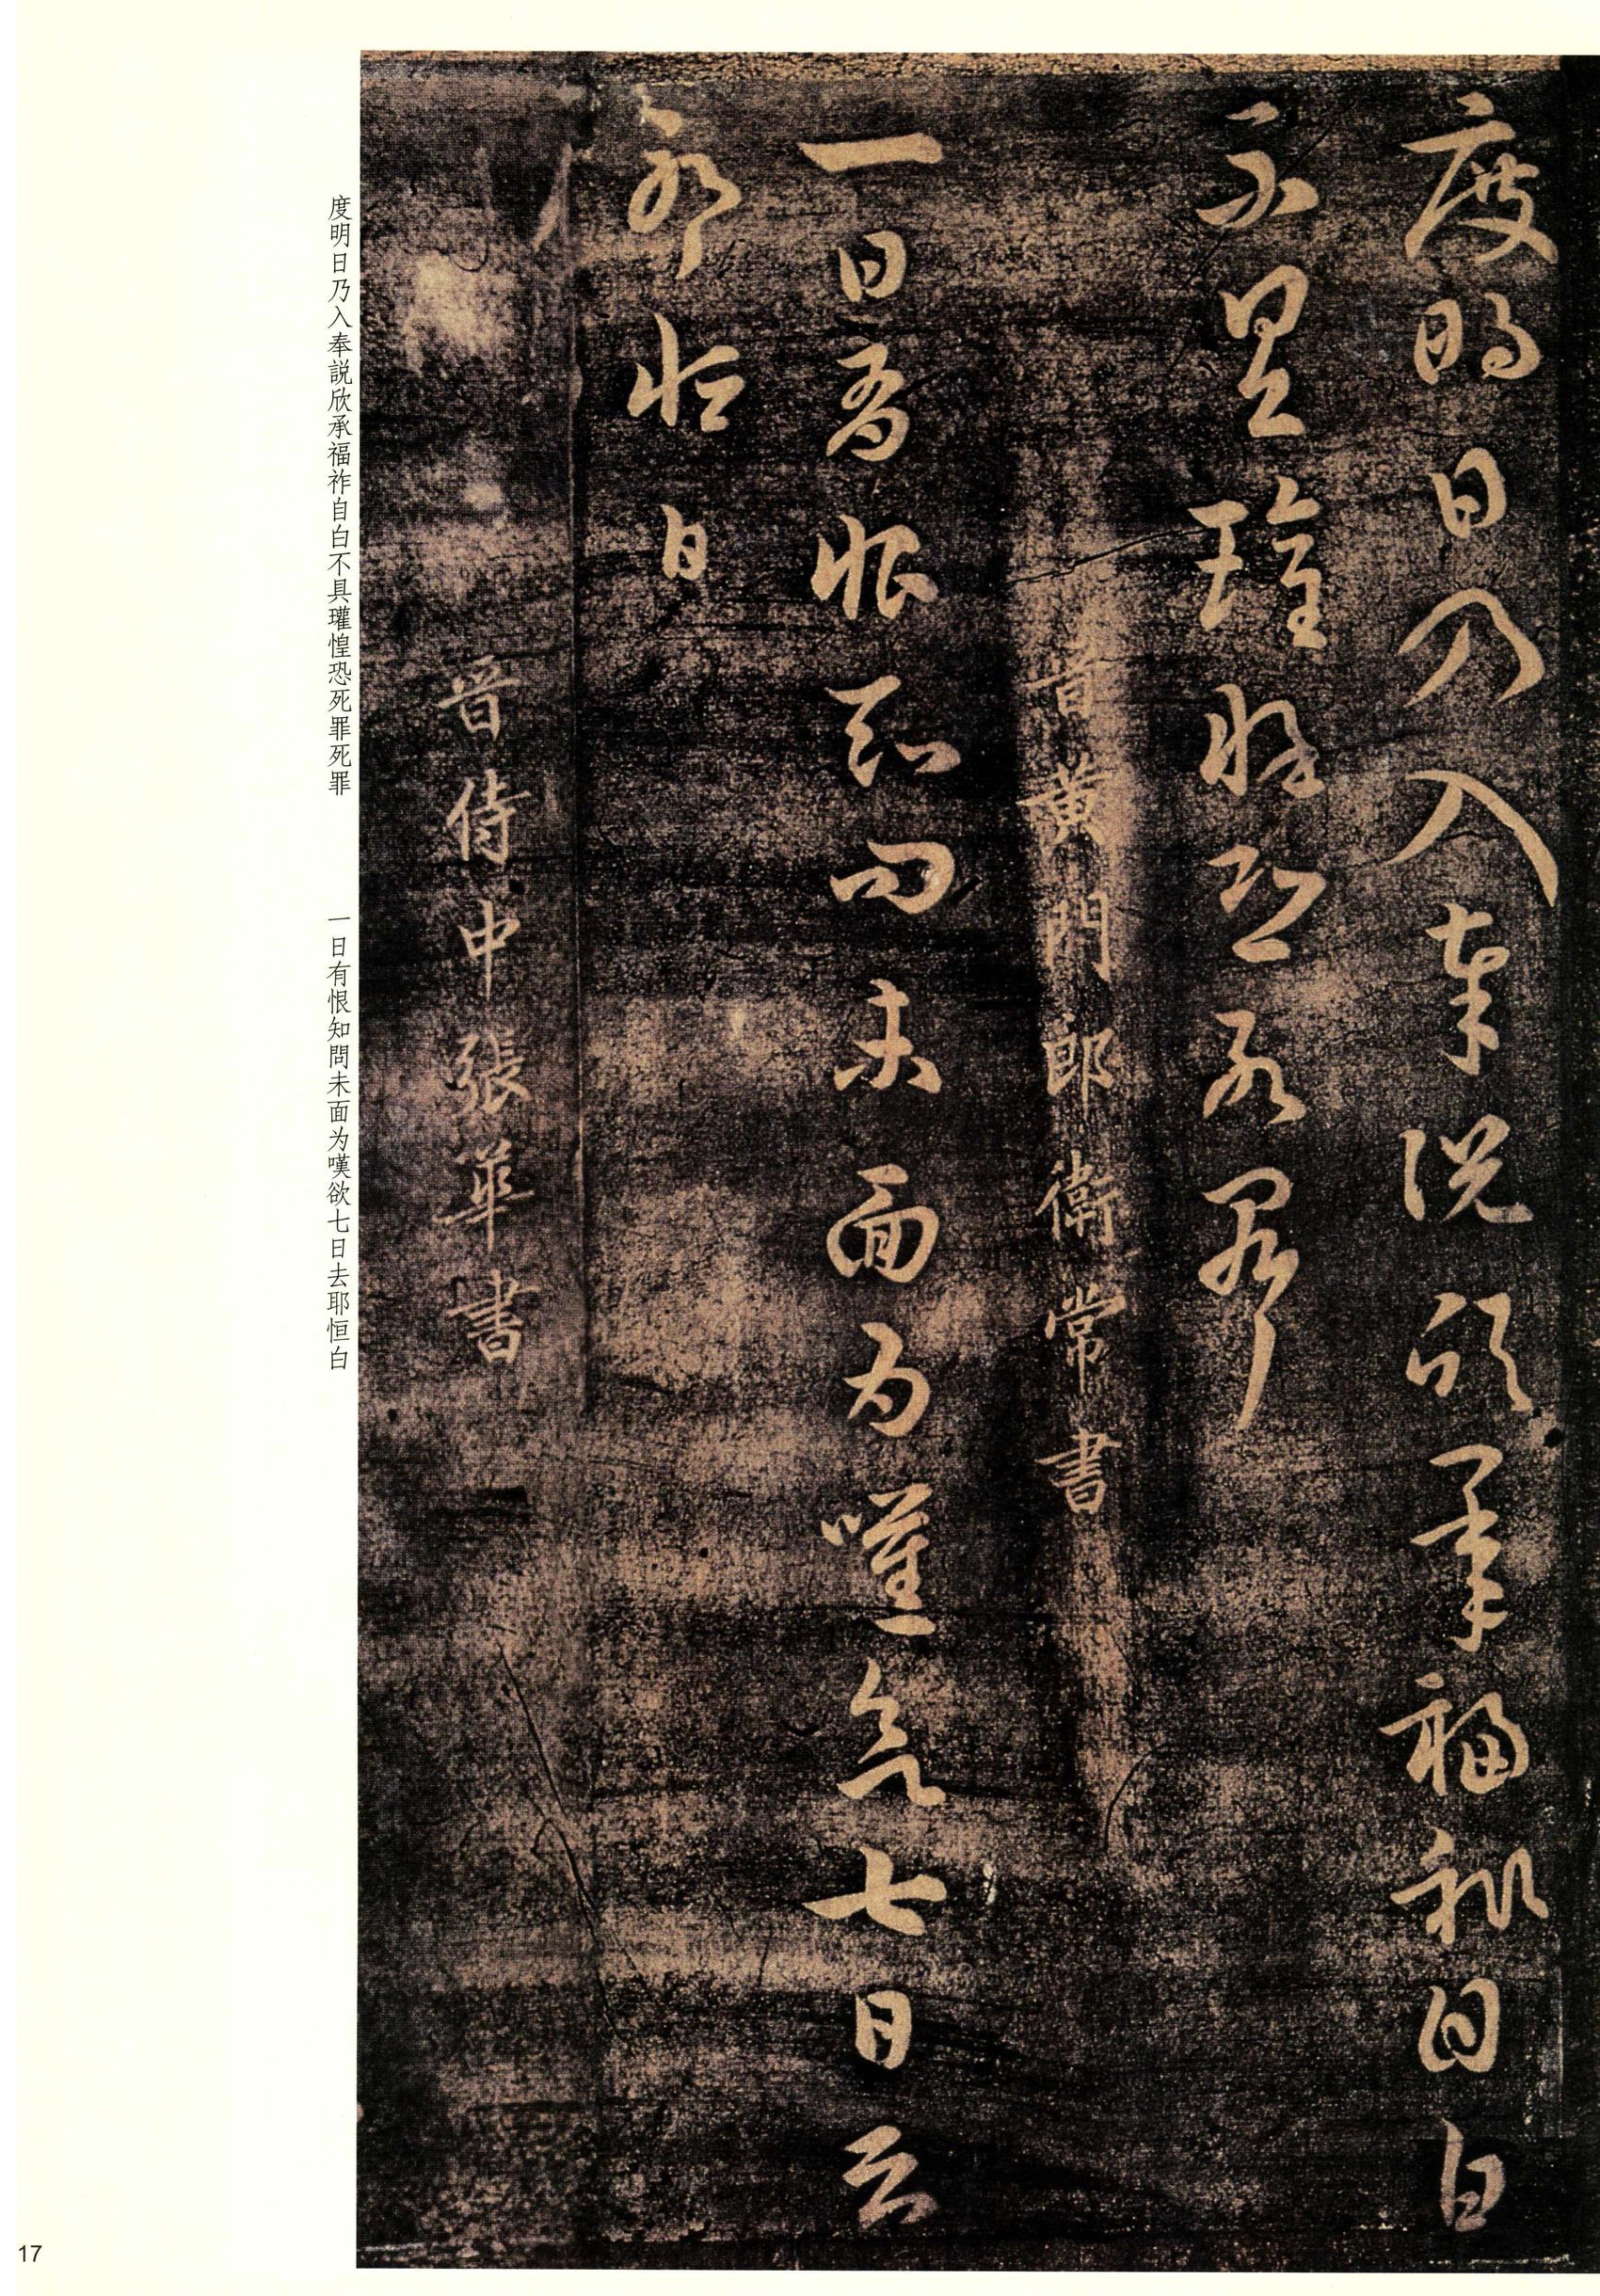 度明日乃入奉説欣承福祚自白
不具瓘惶恐死罪
晉黄門郎衛常書
一日有恨知問未面为嘆欲七日去
耶恒白
晉侍中張華書
度明日乃入奉説欣承福祚自白不具瓘惶恐死罪死罪
一日有恨知問未面为嘆欲七日去耶恒白
17